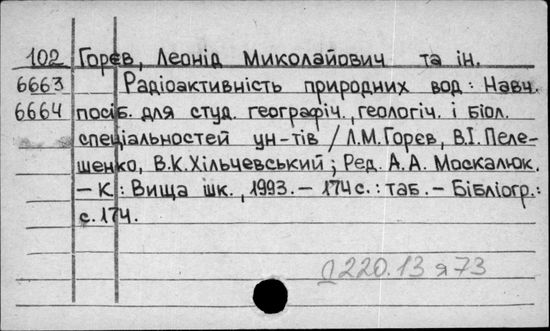 102 Горєв, Леонід Миколайович та ін.
6663 Радіоактивність природних вод : Навч.
6664 посіб. для студ. географіч., геологіч. і біол.
спеціальностей ун-тів / Л.М.Горєв, В.І.Пеле-
шенко, В.К.Хільчевський ; Ред. А.А.Москалюк.
– К : Вища шк., 1993. – 174 с. : таб. – Бібліогр. :
с. 174.
Д220.13 я73